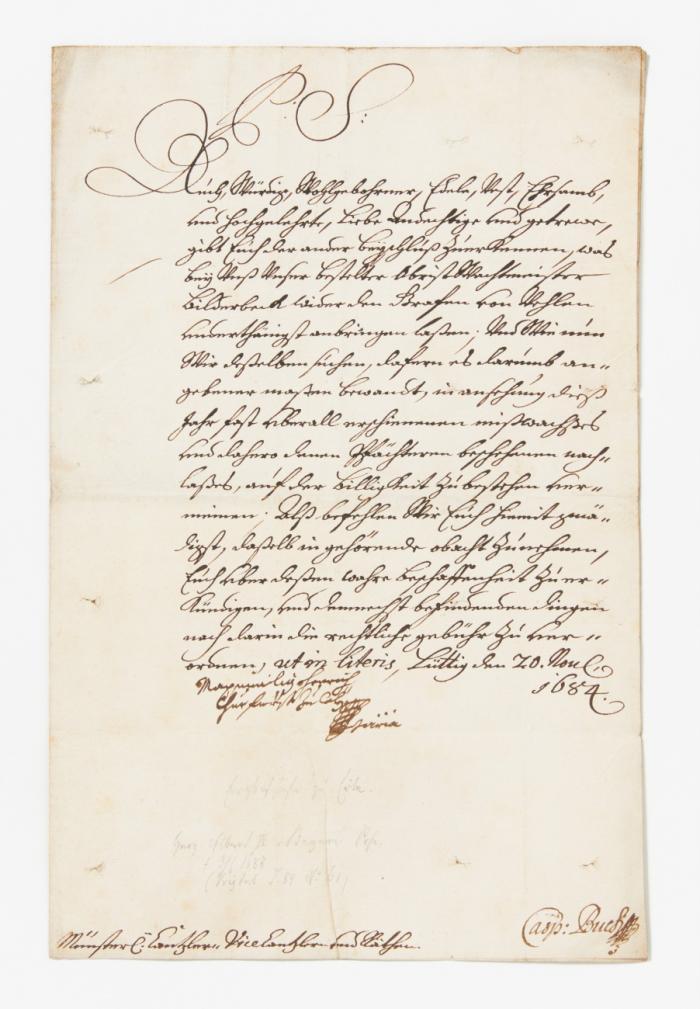 P. S:
Auch, Würdig, Wohlgebohrner, Edele, Vest, Ehrsamb,
und hochgelehrte, liebe Andechtige und getrewe,
gibt Euch der ander beyschluß zu erkennen, was
bey Unß Unser bestelter Obrist Wachtmeister
Bilderbeck wider den Grafen von Vehlen
underthänigst anbringen laßen; Und Wie nun
Wir deßelben suchen, dafern es darumb an=
gebener maßen bewandt, in ansehung dieß
Jahr fast uberall erschienenen mißwachßes
und dahero denen Pfächteren beschehenen nach=
laßes, auf der billigkeit zu bestehen ver=
meinen; Alß befehlen Wir Euch hiemit gnä=
digst, daßelb in gehörende obacht zu nehmen,
Euch uber deßen wahre beschaffenheit zu er=
kündigen, und demnechst befindenden dingen
nach darin die rechtliche gebühr zu ver=
ordnen, ut in literis, Lüttig den 20. Nov.
1684.
Maximilig Henrich
Churfürst zu
Münster. Cantzler= Vice Cantzler und Räthen.
Casp: